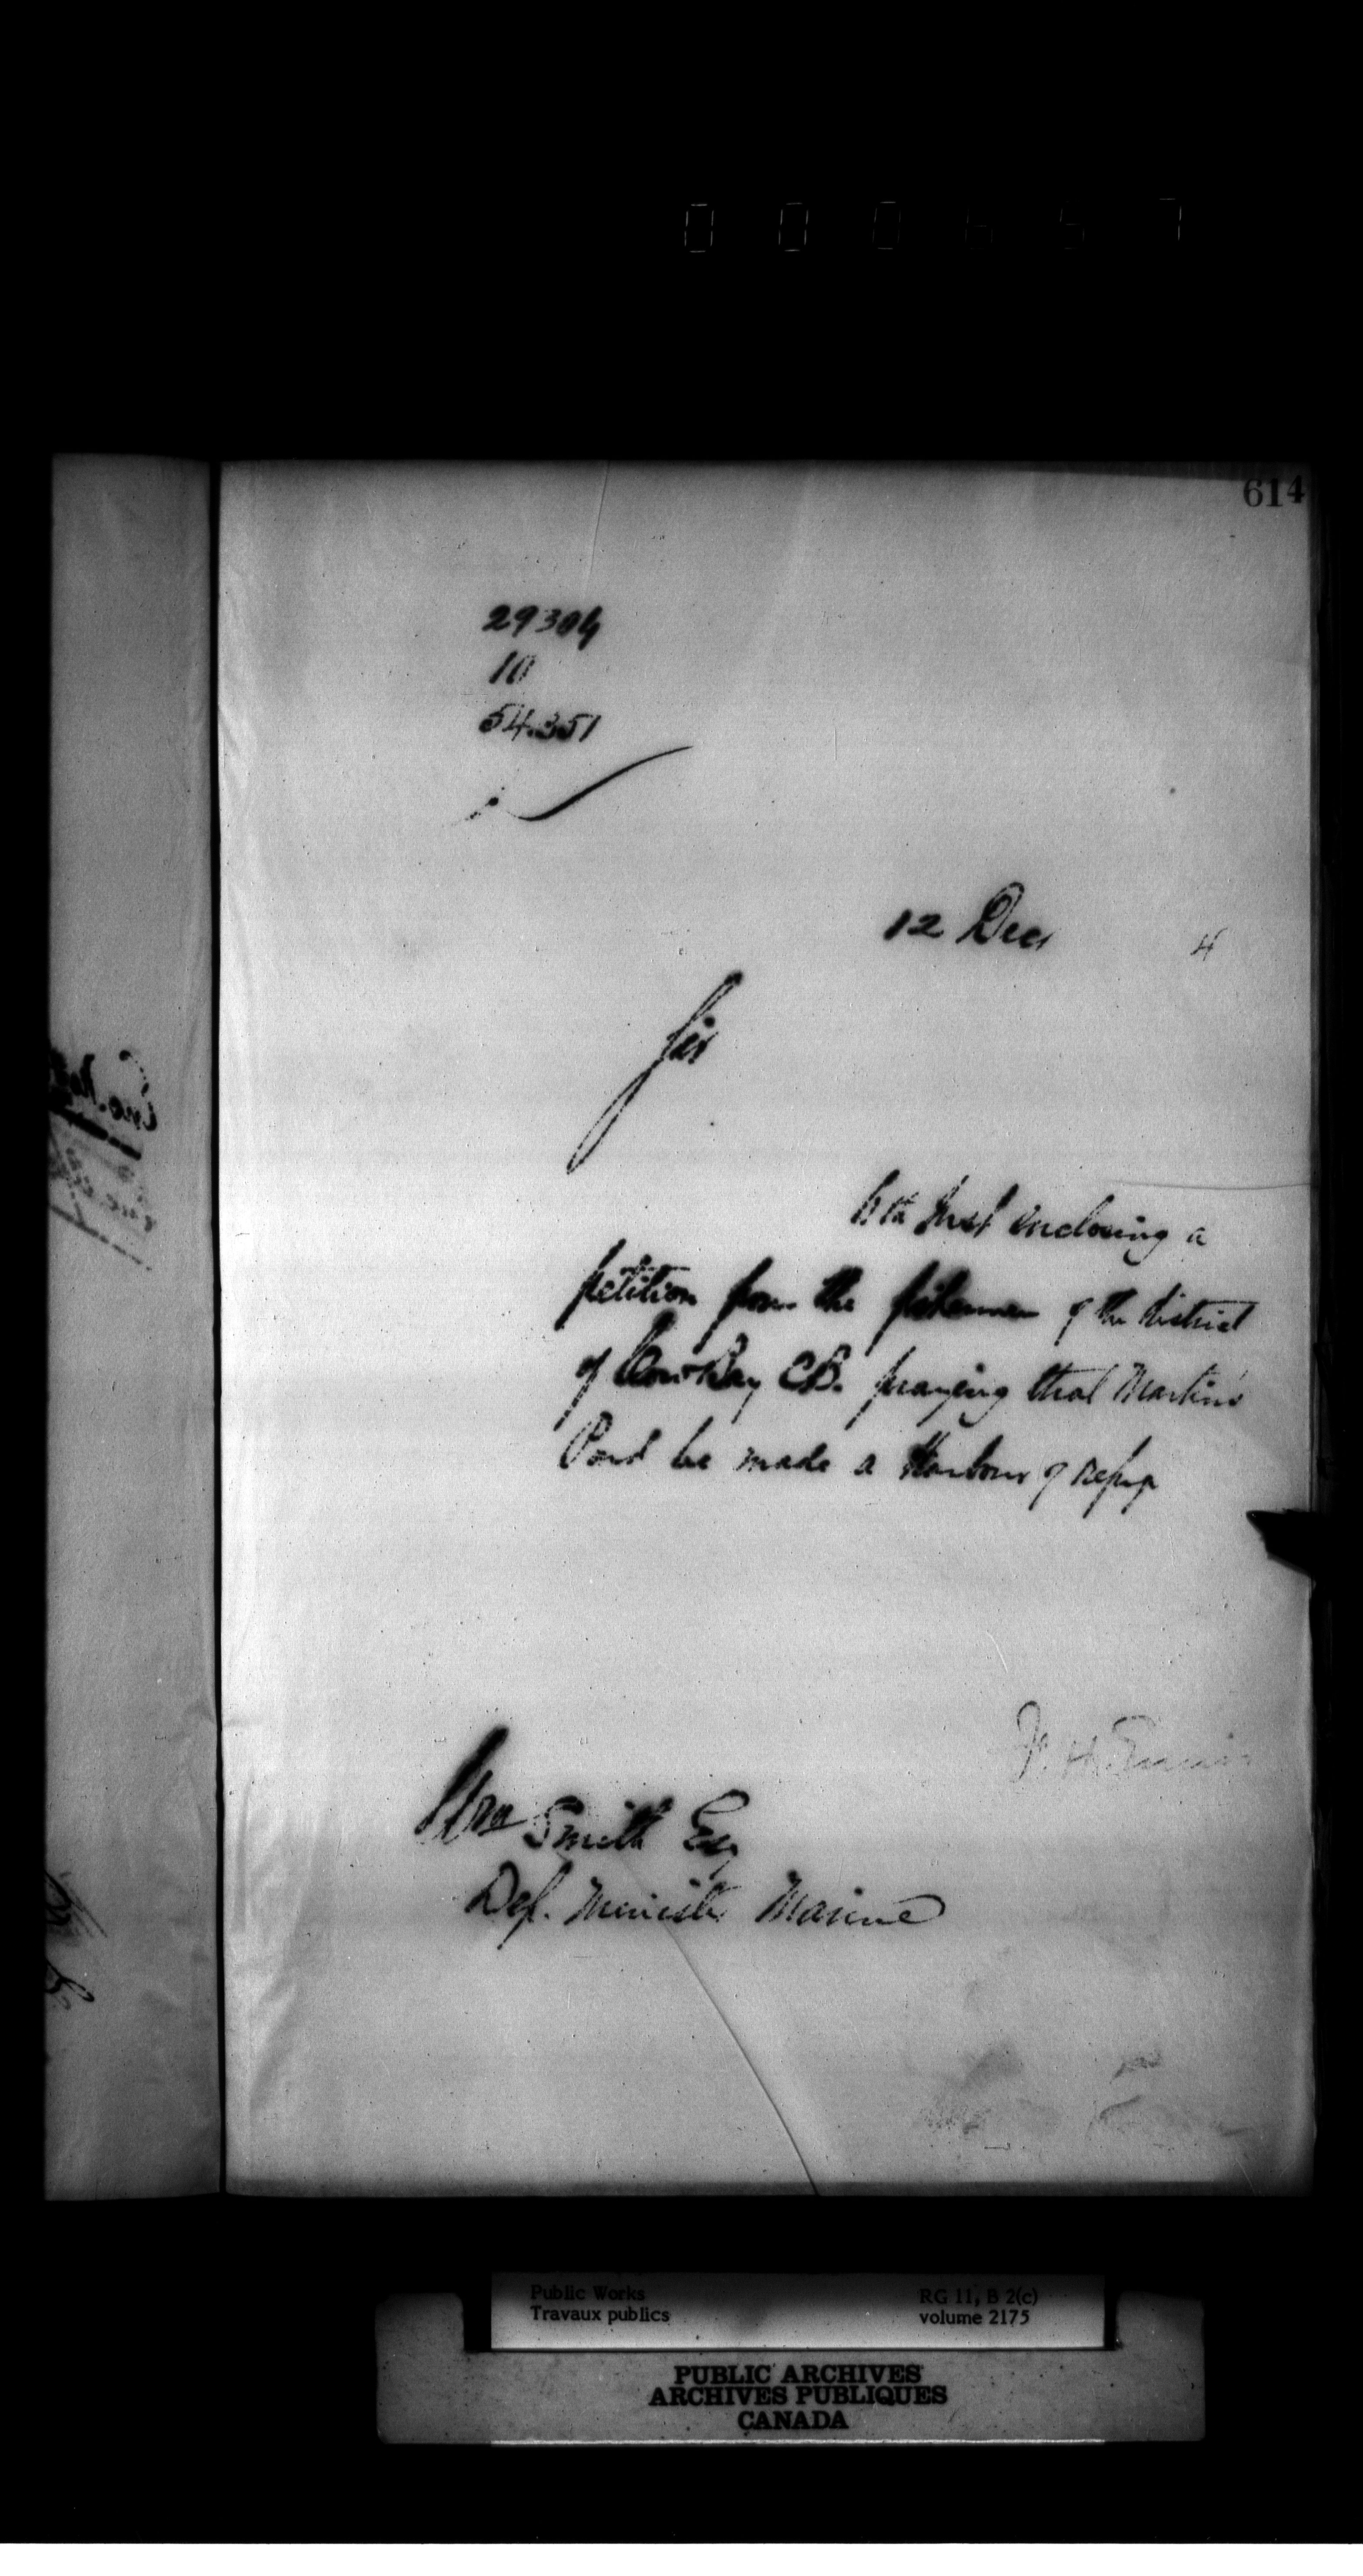 614
29304
10
54.351
12 Dec 4
Sir
6th Inst enclosing a
petition from the fishermen of the district
of Cow Bay C.B. praying that Martin's
Pond be made a Harbour of refuge
Wm Smith Esq
Dep. Minister Marine
Public Works RG 11, B 2(c)
Travaux publics volume 2175
PUBLIC ARCHIVES
ARCHIVES PUBLIQUES
CANADA